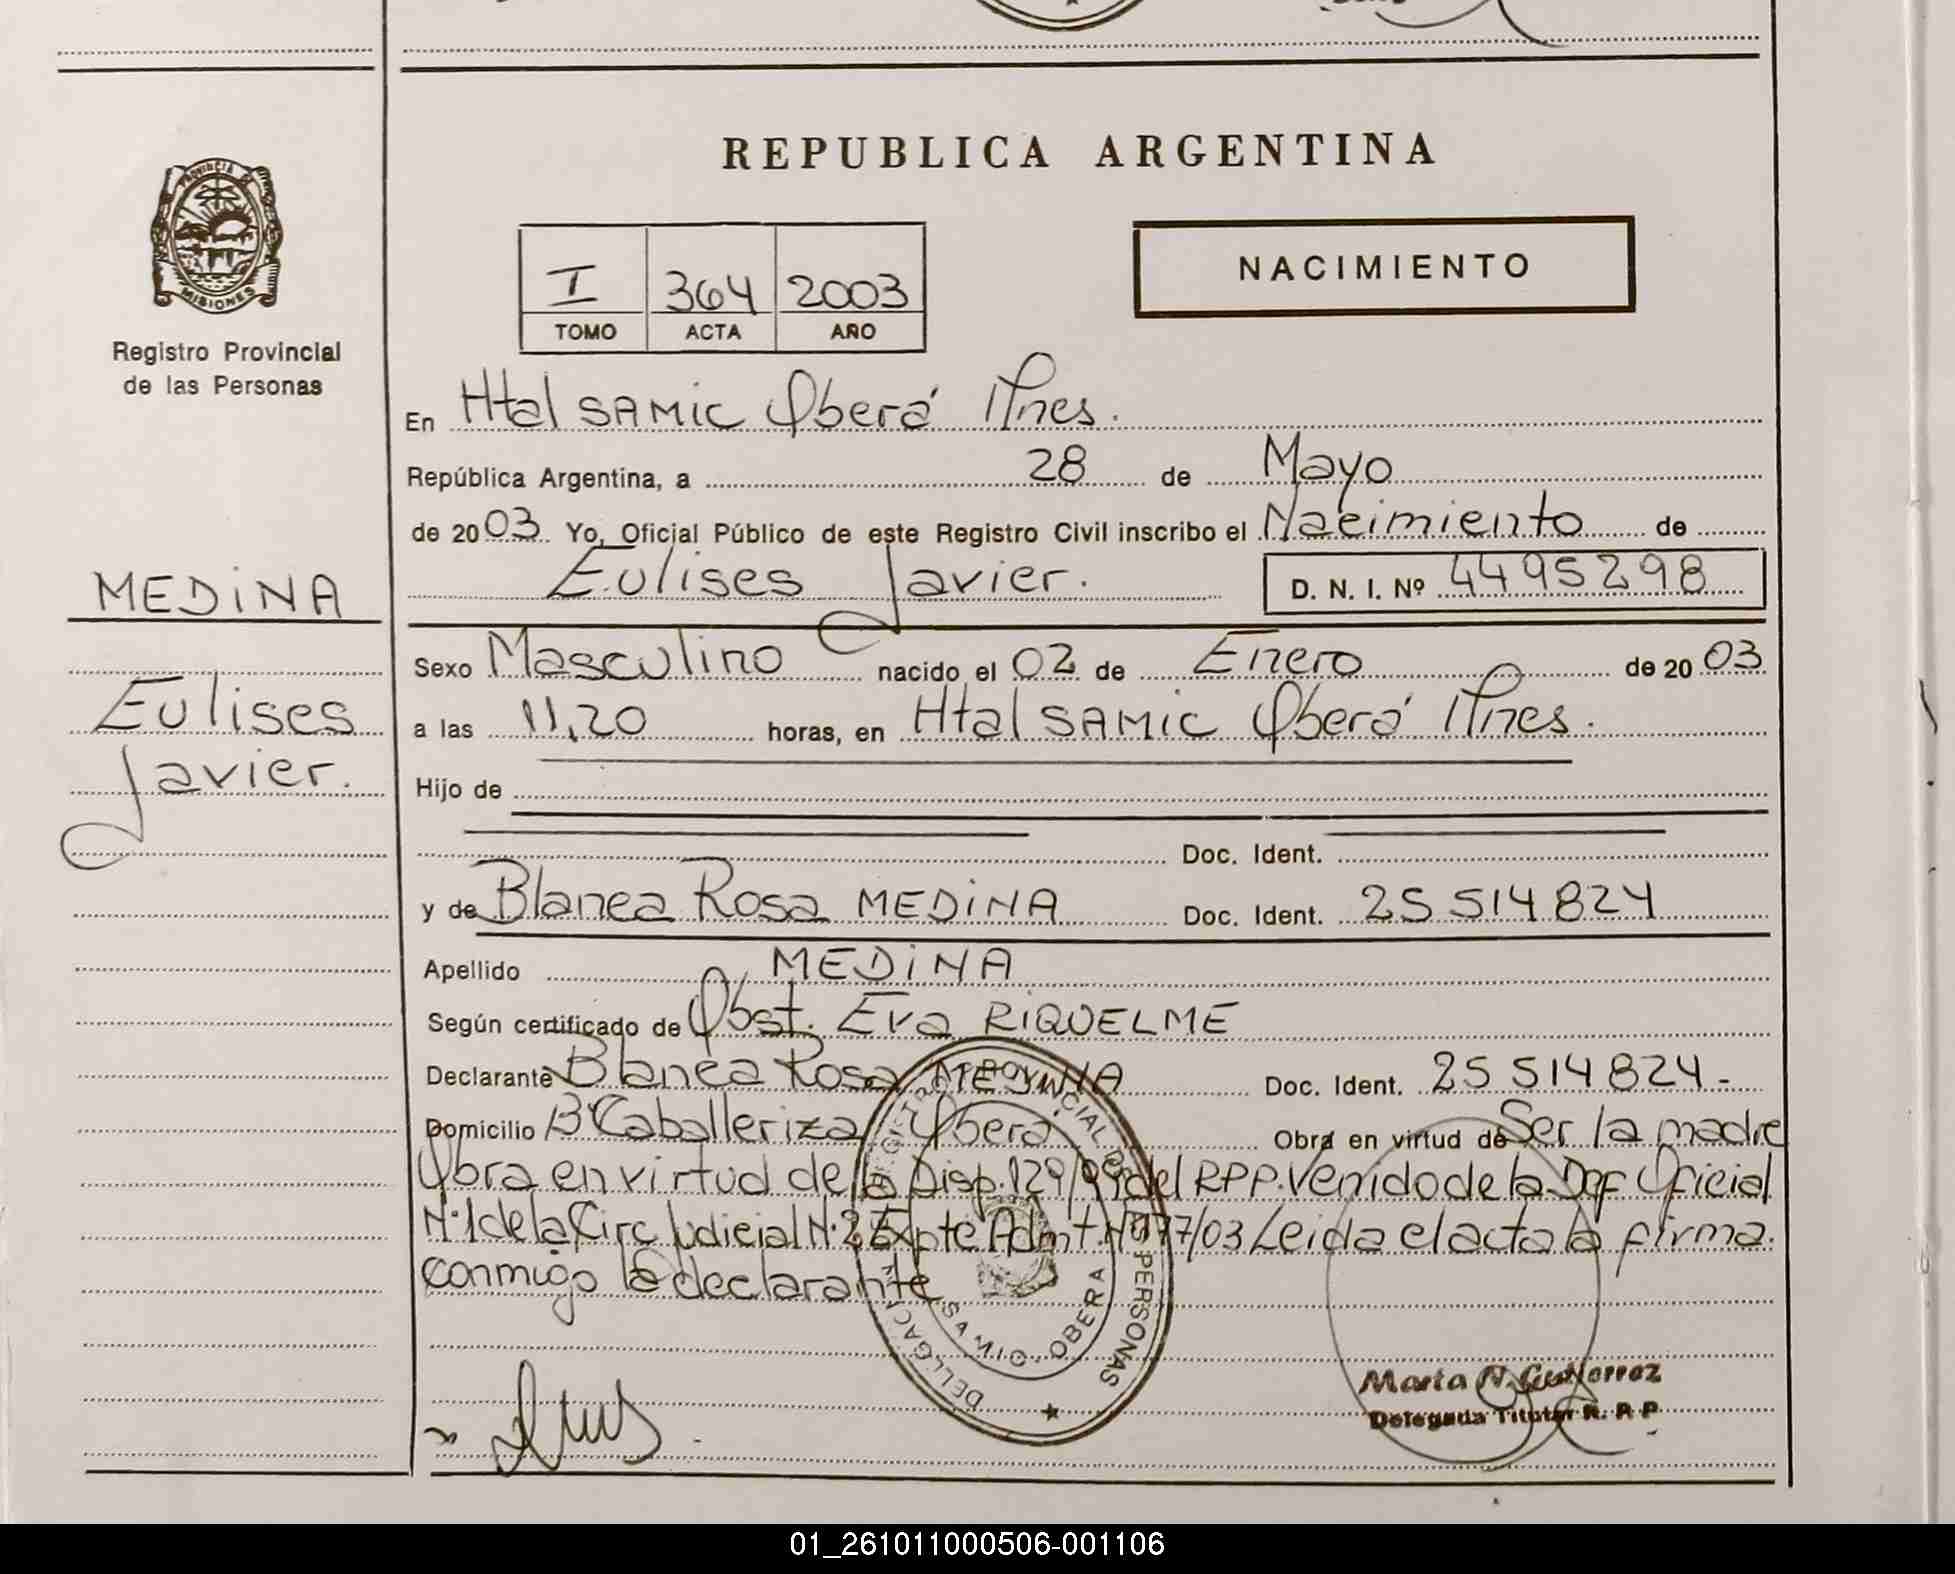 PROVINCIA DE
MISIONES
Registro Provincial
de las Personas
MEDINA
Eulises
Javier.
REPUBLICA ARGENTINA
I 364 2003
TOMO ACTA AÑO
NACIMIENTO
En Htal SAMIC Oberá Mnes.
República Argentina, a 28 de Mayo
de 2003. Yo, Oficial Público de este Registro Civil inscribo el Nacimiento de
Eulises Javier. D. N. I. Nº 4495298
Sexo Masculino nacido el 02 de Enero de 2003
a las 11,20 horas, en Htal SAMIC Oberá Mnes.
Hijo de
Doc. Ident.
y de Blanca Rosa MEDINA Doc. Ident. 25 514 824
Apellido MEDINA
Según certificado de Obst. Eva RIQUELME
Declarante Blanca Rosa MEDINA Doc. Ident. 25 514 824.-
Domicilio Bº Caballeriza Oberá Obra en virtud de Ser la madre
Obra en virtud de la Disp. 129/99 del RPP. Venido de la Def Oficial
Nº 1 de la Circ Judicial Nº 2 Expte Admt. Nº 977/03 Leida el acta la firma
conmigo la declarante
PROVINCIAL DE PERSONAS
SAMIC - OBERA
Marta N. Gutierrez
Delegada Titular R. P. P.
01_261011000506-001106